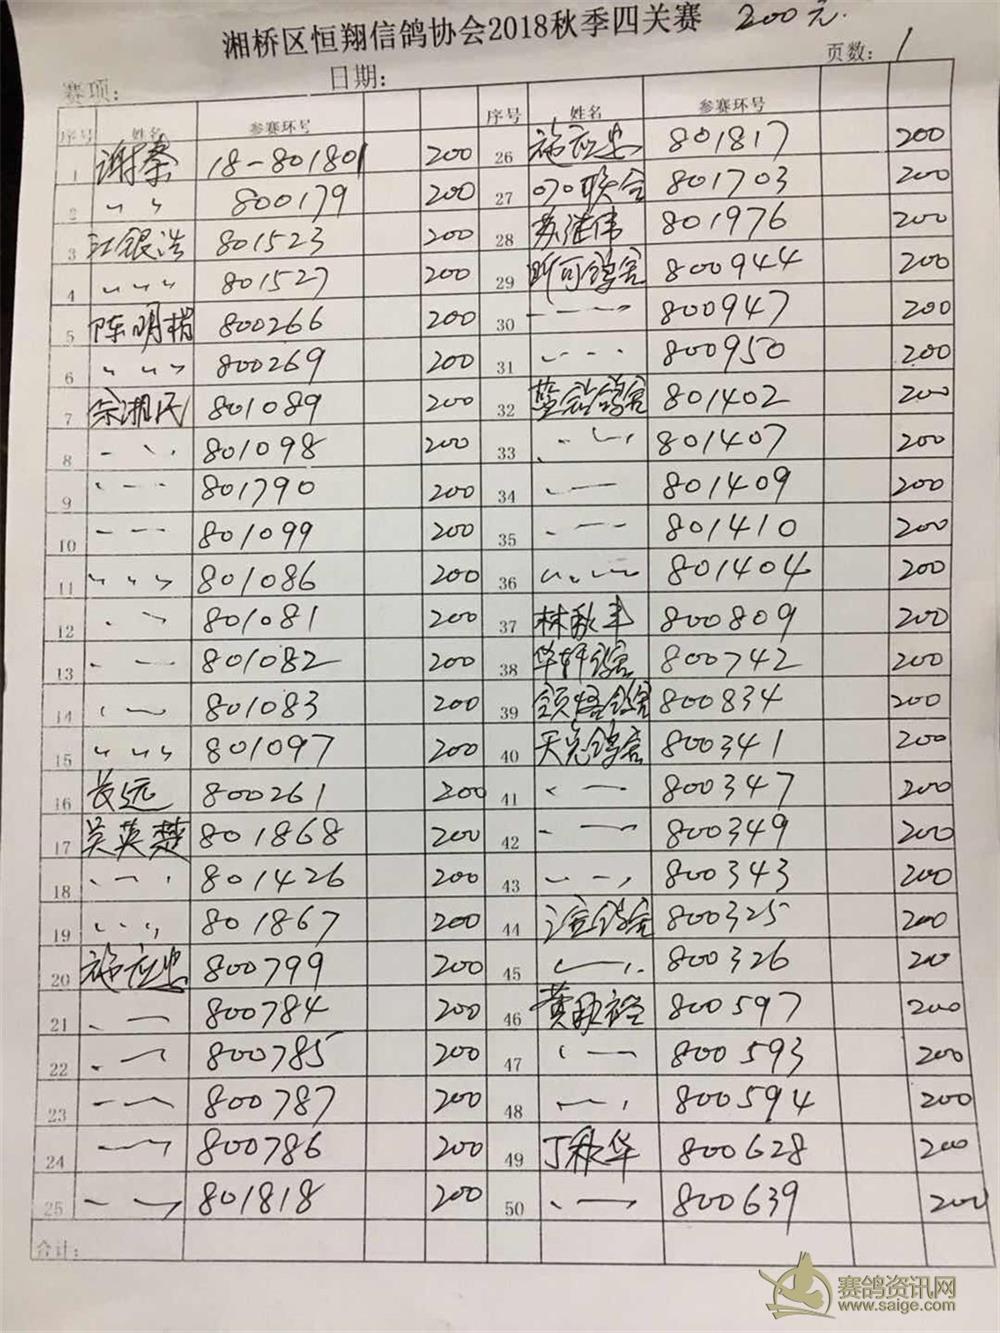 湘桥区恒翔信鸽协会2018秋季四关赛 200元.
赛项: 日期: 页数: 1
序号 姓名 参赛环号 序号 姓名 参赛环号
1 谢荣 18-801801 200 26 施应忠 801817 200
2 〃 〃 800179 200 27 070联合 801703 200
3 江银浩 801523 200 28 苏继伟 801976 200
4 〃 〃 〃 801527 200 29 昕可鸽舍 800944 200
5 陈明楷 800266 200 30 - - - 800947 200
6 〃 〃 〃 800269 200 31 - - - 800950 200
7 余湘民 801089 200 32 鸽舍 801402 200
8 - - - 801098 200 33 - - - 801407 200
9 - - - 801790 200 34 - - 801409 200
10 - - - 801099 200 35 - - - 801410 200
11 〃 〃 〃 801086 200 36 〃 - - 801404 200
12 - - 801081 200 37 林秋丰 800809 200
13 - - 801082 200 38 华轩鸽舍 800742 200
14 - - 801083 200 39 鸽舍 800834 200
15 〃 〃 〃 801097 200 40 天亮鸽舍 800341 200
16 长远 800261 200 41 - - 800347 200
17 吴英楚 801868 200 42 - - - 800349 200
18 - - - 801426 200 43 - - - 800343 200
19 - - - 801867 200 44 鸽舍 800325 200
20 施应忠 800799 200 45 - - 800326 200
21 - - 800784 200 46 黄 800597 200
22 - - 800785 200 47 - - 800593 200
23 - - 800787 200 48 - - 800594 200
24 - - 800786 200 49 丁秋华 800628 200
25 - - 801818 200 50 - - 800639 200
合计:
赛鸽资讯网
www.saige.com